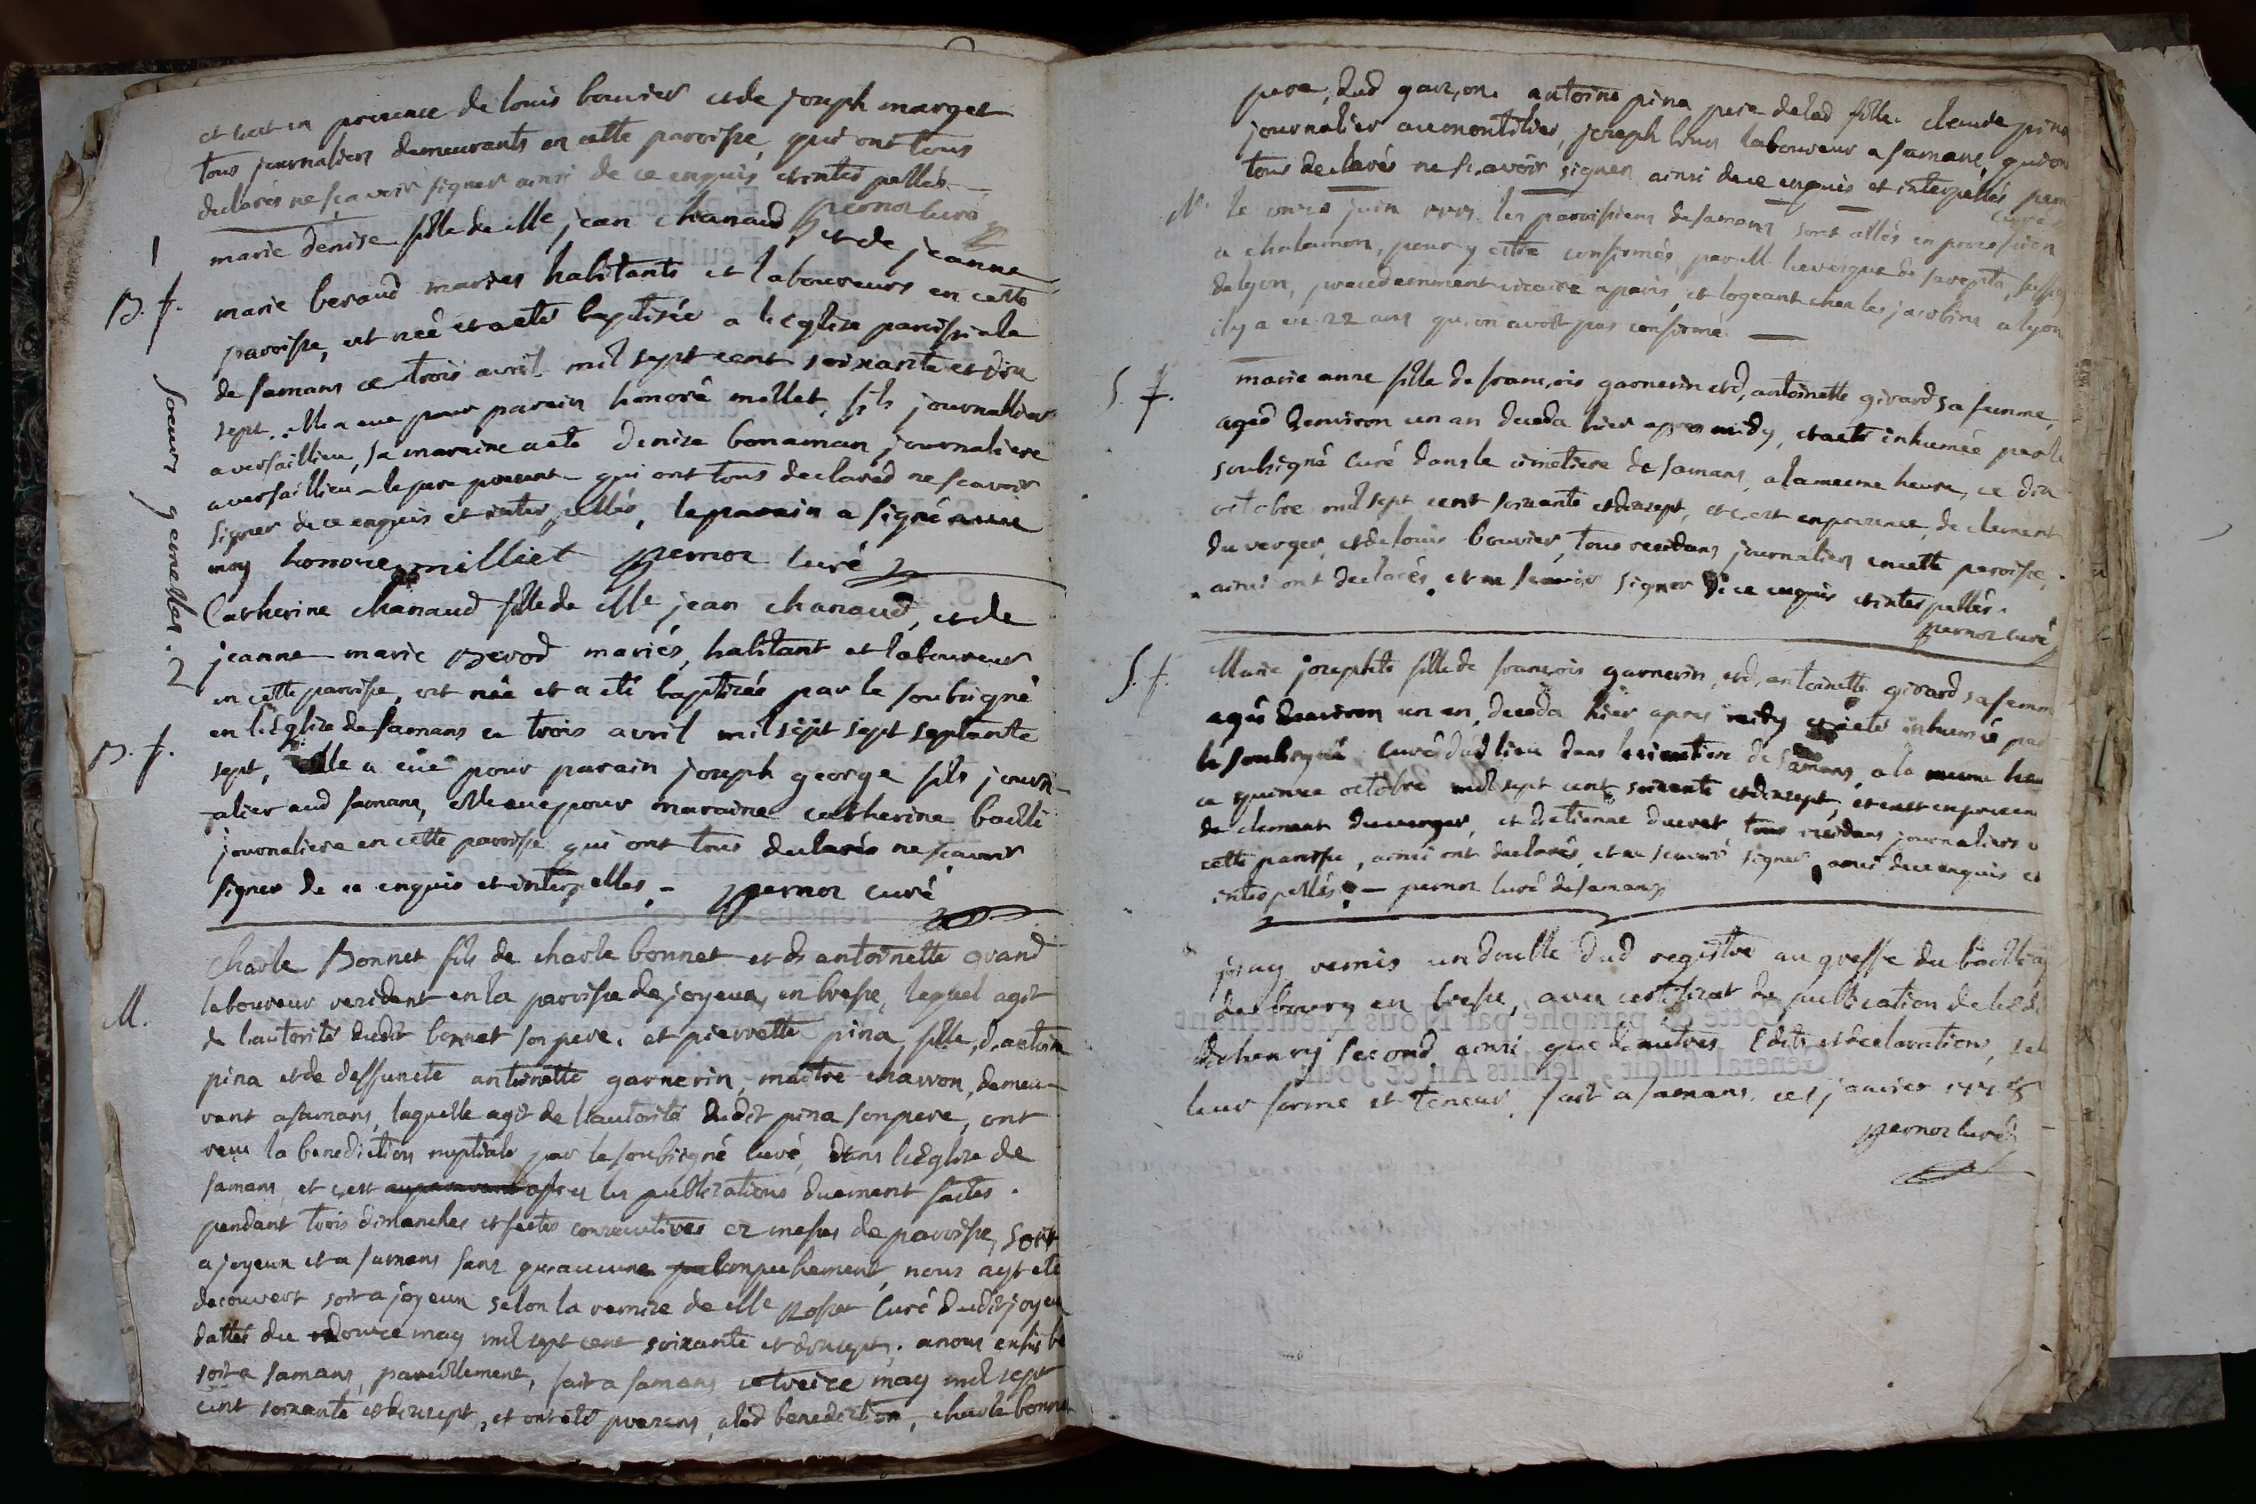 et cest en presence de louis bouvier et de joseph marget
tous journaliers demeurants en cette paroisse, qui ont tous
declarés ne sçavoir signer ainsi de ce enquis et interpellés
pernoz curé
B. f.
marie denise fille de Mr jean chanaud, et de jeanne
marie beraud mariés habitants et laboureurs en cette
paroisse, est née et a eté baptisée a l'eglise paroissiale
de samans ce trois avril mil sept cent soixante et dix
sept. elle a eue pour parain honoré millet, fils journallier
a versaillieu, sa maraine a eté denise bonaman journaliere
a versaillieu le pere present qui ont tous declared ne scavoir
signer de ce enquis et interpellés, le parain a signé avec
moy honore milliet pernoz curé
soeurs gemelles. 2
Catherine chanaud fille de Mr jean chanaud, et de
jeanne marie Berod mariés, habitant et laboureur
en cette paroisse, est née et a eté baptizée par le soubsigné
B. f.
en l'Eglize de samans ce trois avril mil sept sept septante
sept, elle a eüe pour parain joseph george fils journ-
alier aud samans, elle a eue pour maraine catherine bailli
journaliere en cette paroisse qui ont tous declarés ne scavoir
signer de ce enquis et interpelles. - pernoz curé
M.
Charle Bonnet fils de charle bonnet et de antoinette grand
laboureur resident en la paroisse de joyeux en bresse, lequel agit
de l'autorité dudit bonnet son pere. et pierrette pina fille, d'antoine
pina et de deffuncte antoinette garnerin, maitre charron, demeu-
rant a samans, laquelle agit de l'autorité dudit pina son pere, ont
reçu la benediction nuptiale par le soubsigné curé, dans l'Eglize de
samans, et c'est auparavant apres les publications duement faites.
pendant trois dimanches et festes consecutives ez messes de paroisse, soit
a joyeux et a samans sans qu'aucune empechement nous ayt eté
decouvert soit a joyeux selon la remise de Mr Curé dudit joyeux
dattés du douze may mil sept cent soixante et dix sept,
soit a samans, pareillement, fait a samans ce treize may mil sept
cent soixante et dix sept, et ont été presens, a lad benediction, charle bonnet
pere, dud garçon. antoine pina pere de lad fille. claude pina
journalier au montillier, joseph laboureur a samans, qui ont
tous declarés ne scavoir signer ainsi de ce enquis et interpellés pernoz
curé
N. le onze juin 1777. les paroissiens de samans sont allés en procession
a chalamon, pour y estre confirmés, par M. l'evesque de sarepta, suff
de lyon, precedemment vicaire a paris, et logeant chez les jacobins a lyon
il y a eu 22 ans qu'on avoit pas confirmé.
S. f.
marie anne fille de françois garnerin et d'antoinette girard sa femme,
aged d'environ un an deceda hier apres midy, et a eté inhumée par le
soubsigné curé dans le cimetiere de samans, a la mesme heure, ce dix
octobre mil sept cent soixante et dix sept, et c'est en presence, de clement
du verger, et de louis bouvier, tous residans journaliers en cette paroisse,
ainsi ont declarés, et ne scavoir signer de ce enquis et interpellés.
pernoz curé
S. f.
Marie josephte fille de françois garnerin, et d'antoinette girard sa femme
agée d'environ un an, deceda hier apres midy et a eté inhumée par
le soubsigné curé dud lieu dans le cimetiere de samans, a la mesme heu
ce quinze octobre mil sept cent soixante et dix sept, et c'est en presen
de clement duverger, et d'etienne ducret tous residans journaliers e
cette paroisse, ainsi ont declarés, et ne scavoir signer, ainsi de ce enquis et
interpellés. - pernoz curé de samans
j'ay remis un double dud registre au greffe du bailliag
de bourg en bresse, avec certificat de publication de l'edi
d'henry second ainsi que d'autres Edits et declarations, sel
leur forme et teneur. fait a samans. ce 1 janvier 1778
pernoz curé